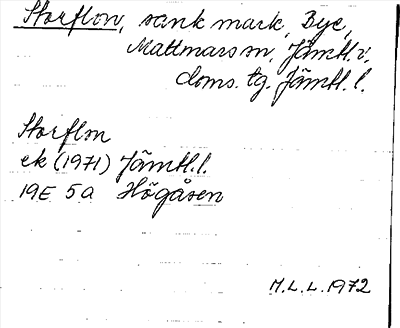 Storflon, sank mark, Bye,
Mattmars sn, Jämtl. v.
doms. tg. Jämtl. l.
Storflon
ek (1971) Jämtl. l.
19E 5a Högåsen
M. L. L. 1972